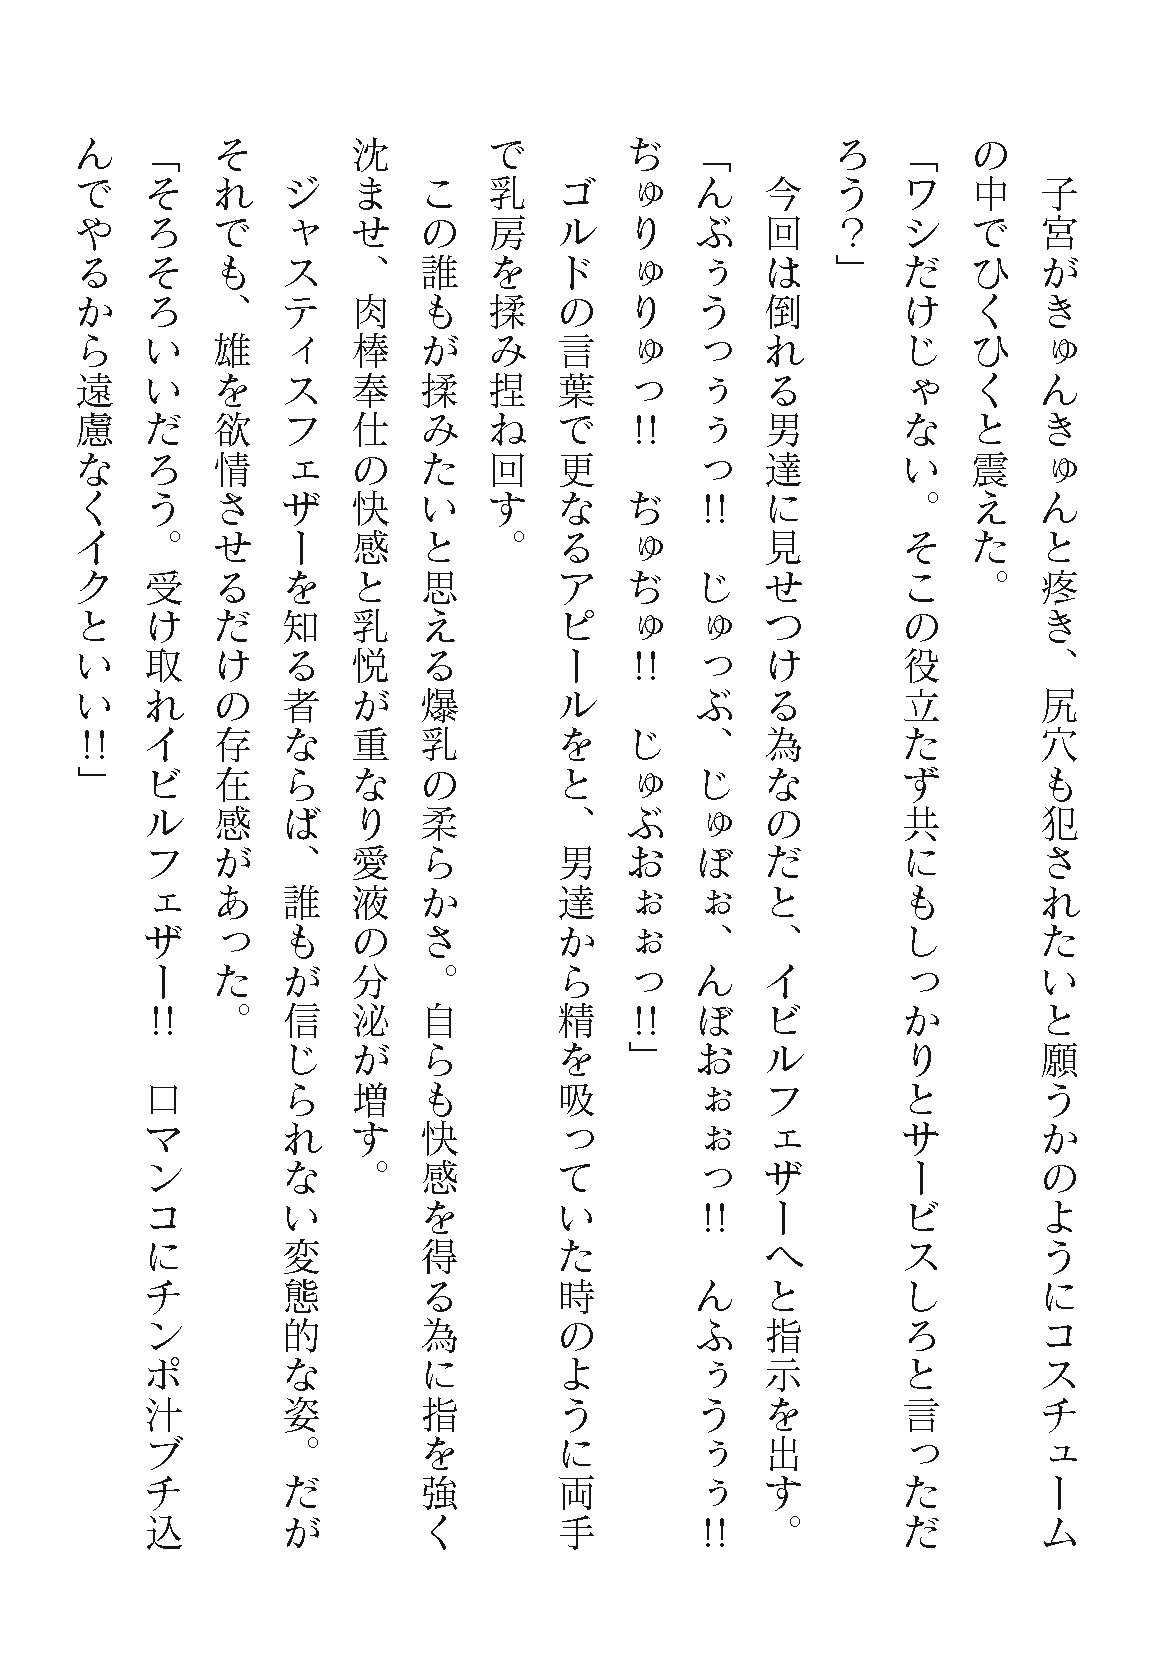 子宮がきゅんきゅんと疼き、尻穴も犯されたいと願うかのようにコスチューム
の中でひくひくと震えた。
「ワシだけじゃない。そこの役立たず共にもしっかりとサービスしろと言っただ
ろう？」
今回は倒れる男達に見せつける為なのだと、イビルフェザーへと指示を出す。
「んぶぅうっぅぅっ!!　じゅっぶ、じゅぼぉ、んぼおぉぉっ!!　んふぅうぅぅ!!
ぢゅりゅりゅっ!!　ぢゅぢゅ!!　じゅぶおぉぉっ!!」
ゴルドの言葉で更なるアピールをと、男達から精を吸っていた時のように両手
で乳房を揉み捏ね回す。
この誰もが揉みたいと思える爆乳の柔らかさ。自らも快感を得る為に指を強く
沈ませ、肉棒奉仕の快感と乳悦が重なり愛液の分泌が増す。
ジャスティスフェザーを知る者ならば、誰もが信じられない変態的な姿。だが
それでも、雄を欲情させるだけの存在感があった。
「そろそろいいだろう。受け取れイビルフェザー!!　口マンコにチンポ汁ブチ込
んでやるから遠慮なくイクといい!!」